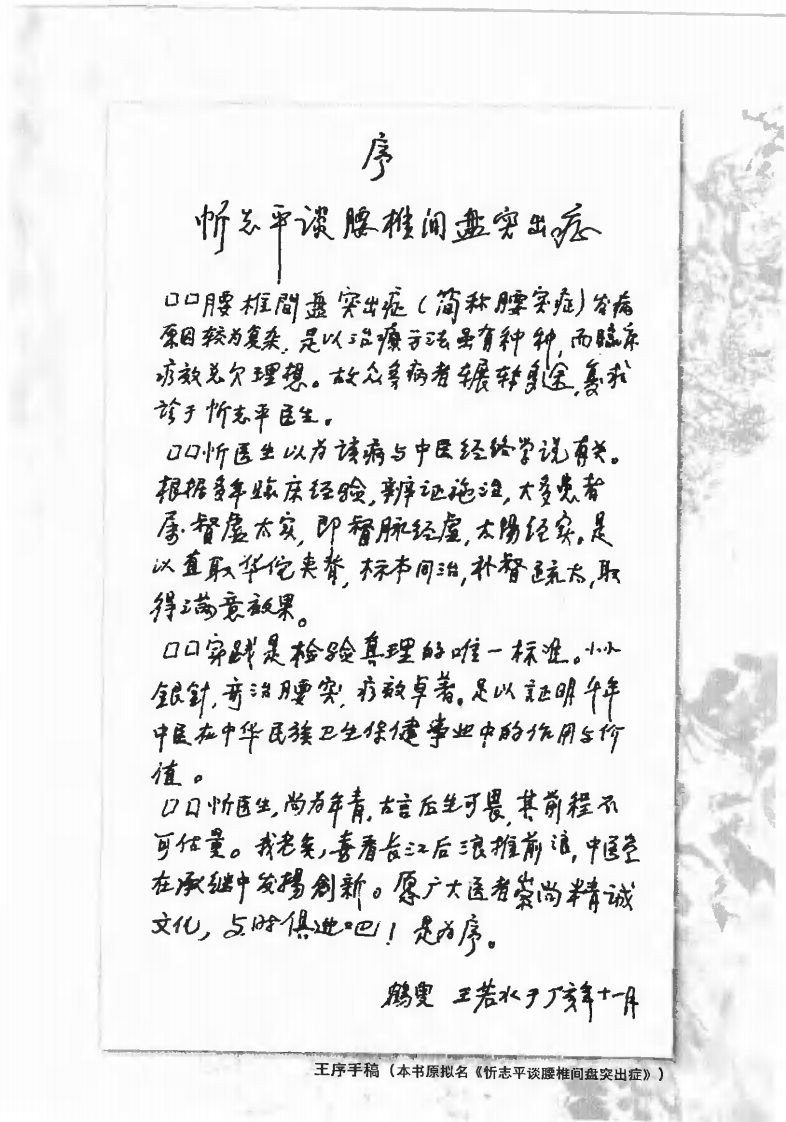 序
忻志平谈腰椎间盘突出症
□□腰椎間盘突出症（简称腰突症）发病
原因较为复杂，是以治療方法虽有种种，而臨床
疗效总欠理想。故众多病者辗转多途，复求
診于忻志平医生。
□□忻医生以为该病与中医经络学说有关。
根据多年临床经验，辨证施治，大多患者
属督虚太实，即督脉经虚，太陽经实。是
以直取华佗夹脊，标本同治，补督疏太，取
得满意效果。
□□实践是检验真理的唯一标准。小小
银針，奇治腰突，疗效卓著。足以証明千年
中医在中华民族卫生保健事业中的作用与价
值。
□□忻医生，尚为年青，古言后生可畏，其前程不
可估量。我老矣，喜看长江后浪推前浪，中医
在承继中发揚創新。愿广大医者崇尚精诚
文化，与时俱进吧！是为序。
鶴叟 王若水于丁亥年十一月
王序手稿（本书原拟名《忻志平谈腰椎间盘突出症》）